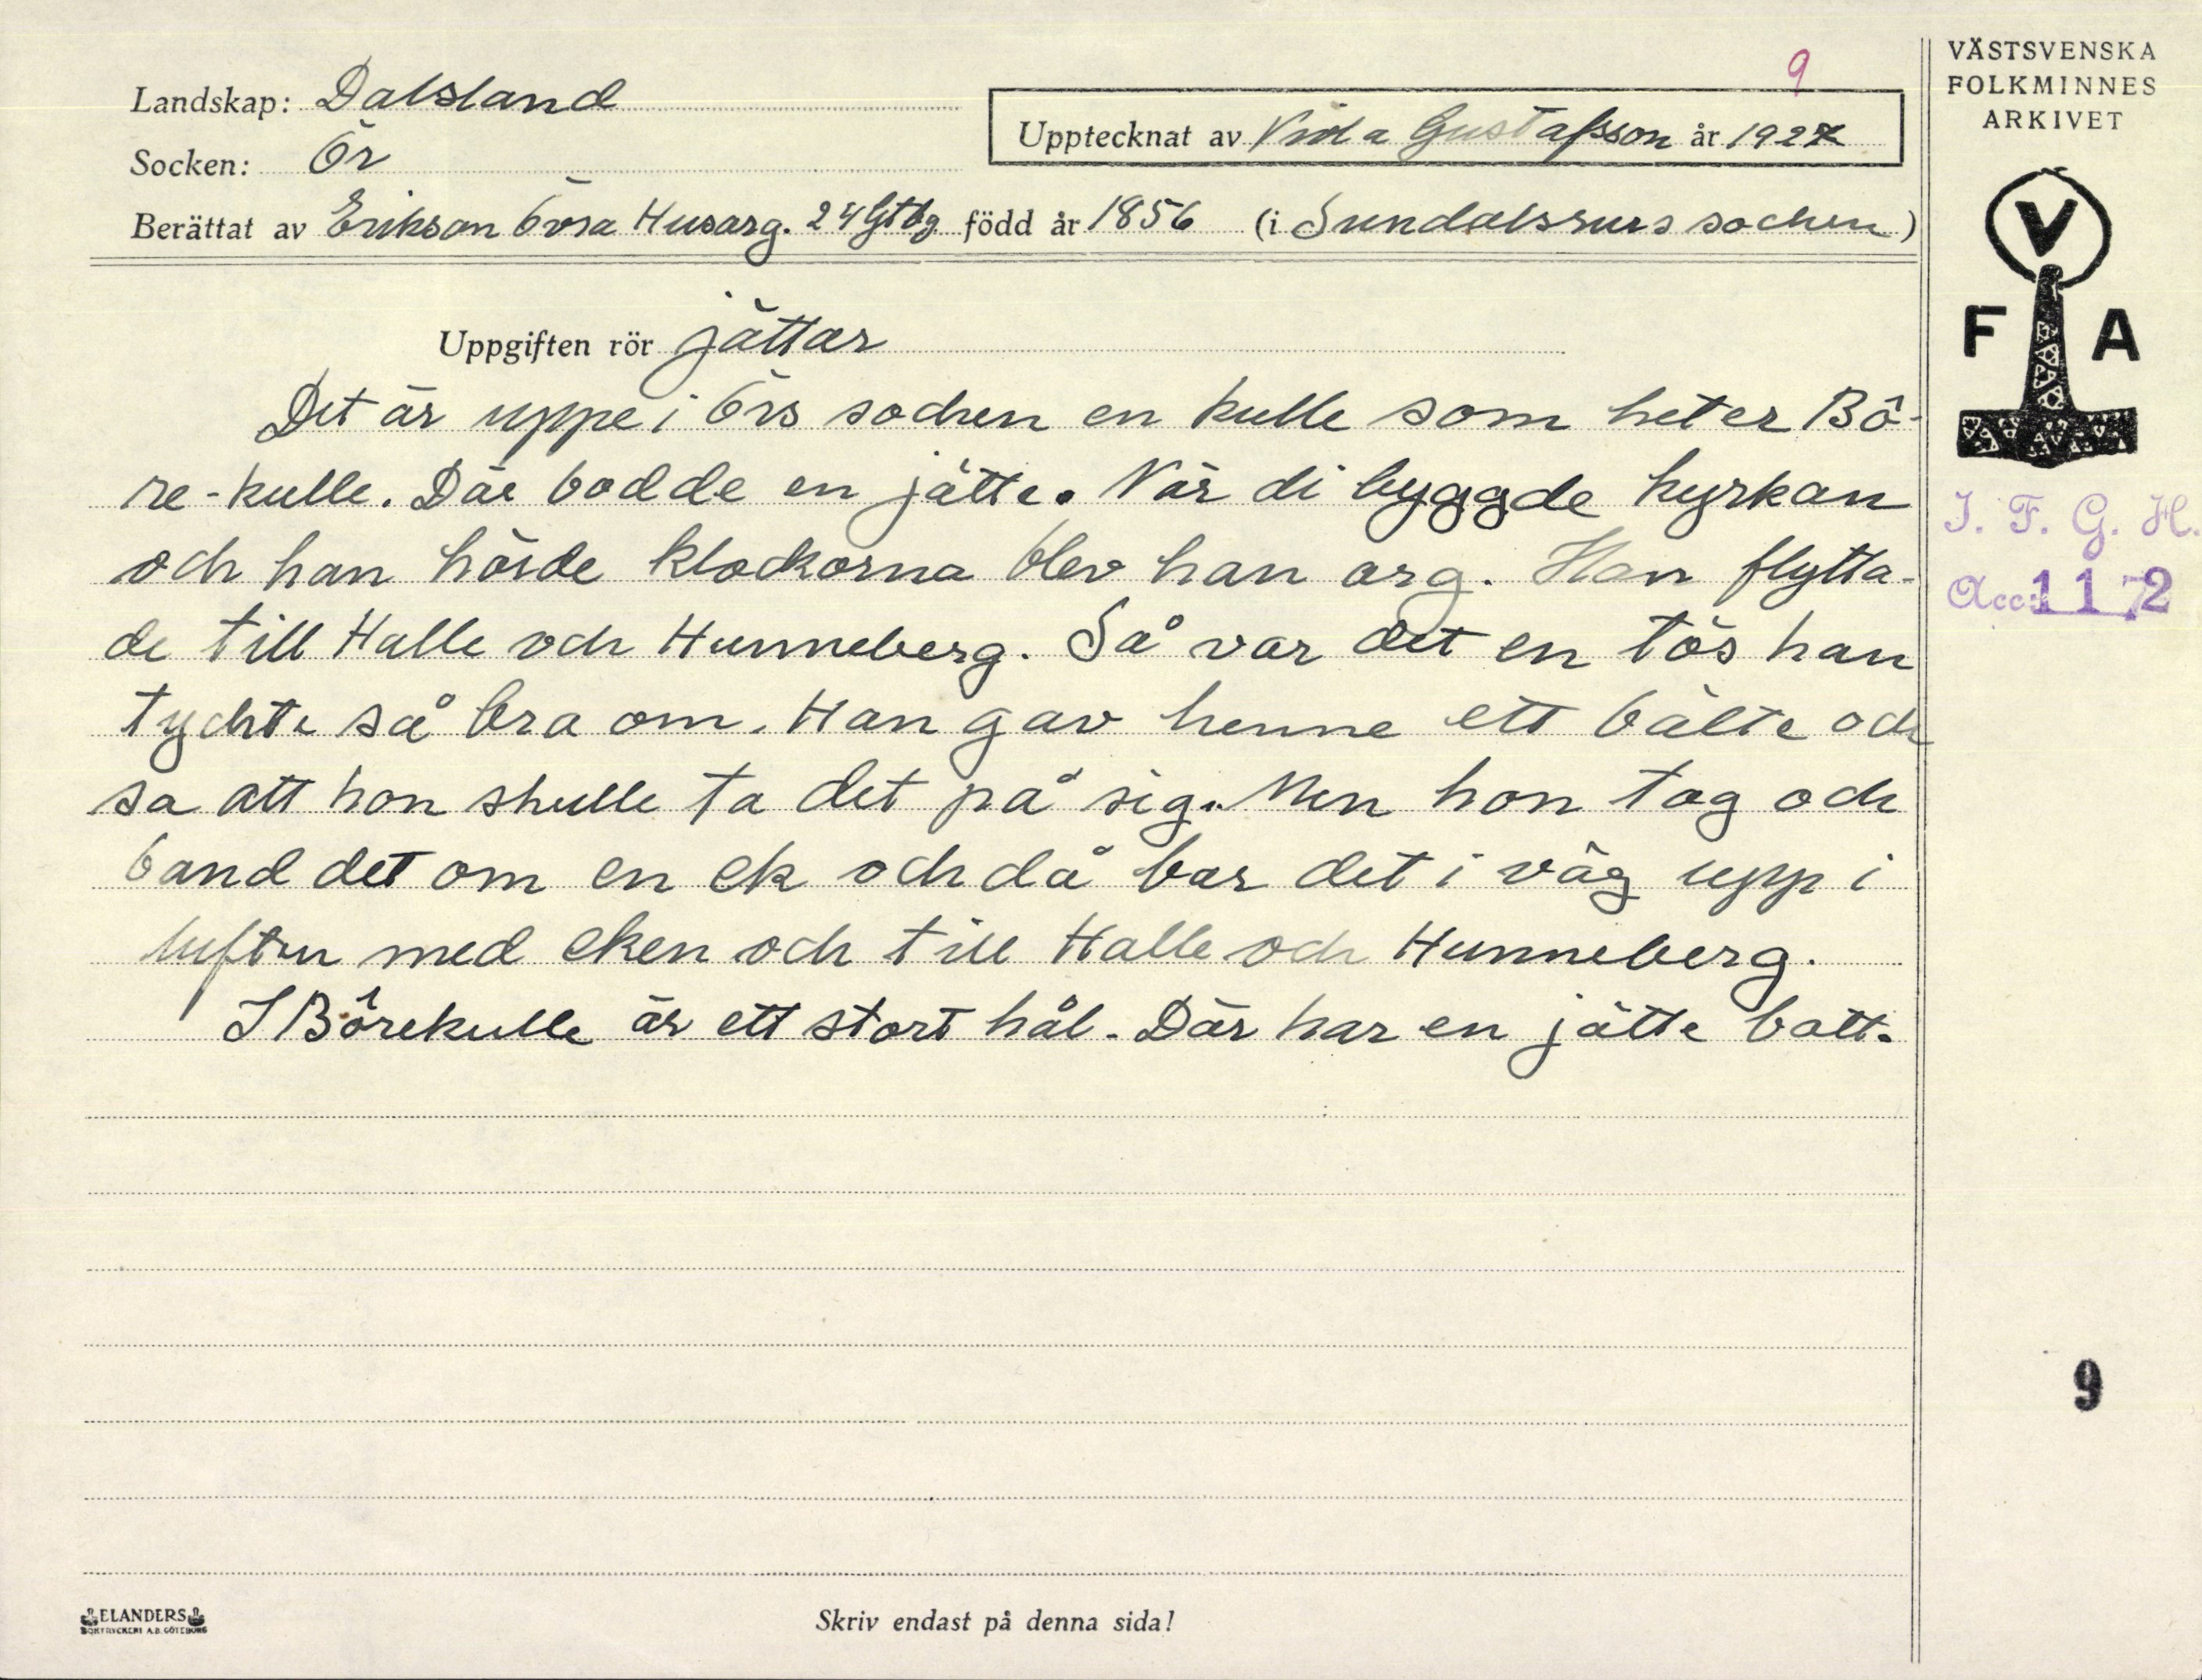 9
Landskap: Dalsland
Upptecknat av Vida Gustafsson år 1927
Socken: Ör
Berättat av Erikson Övra Husarg. 24 Gtbg född år 1856 (i Sundalsryrs socken)
Uppgiften rör jättar
Det är uppe i Örs socken en kulle som heter Bö-
re-kulle. Där bodde en jätte. När di byggde kyrkan
och han hörde klockorna blev han arg. Han flytta-
de till Halle och Hunneberg. Så var det en tös han
tyckte så bra om. Han gav henne ett bälte och
sa att hon skulle ta det på sig. Men hon tog och
band det om en ek och då bar det i väg upp i
luften med eken och till Halle och Hunneberg.
I Börekulle är ett stort hål. Där har en jätte bott.
VÄSTSVENSKA
FOLKMINNES
ARKIVET
V
F A
I. F. G. H.
Acc: 1172
9
ELANDERS
BOKTRYCKERI A.B. GÖTEBORG
Skriv endast på denna sida!